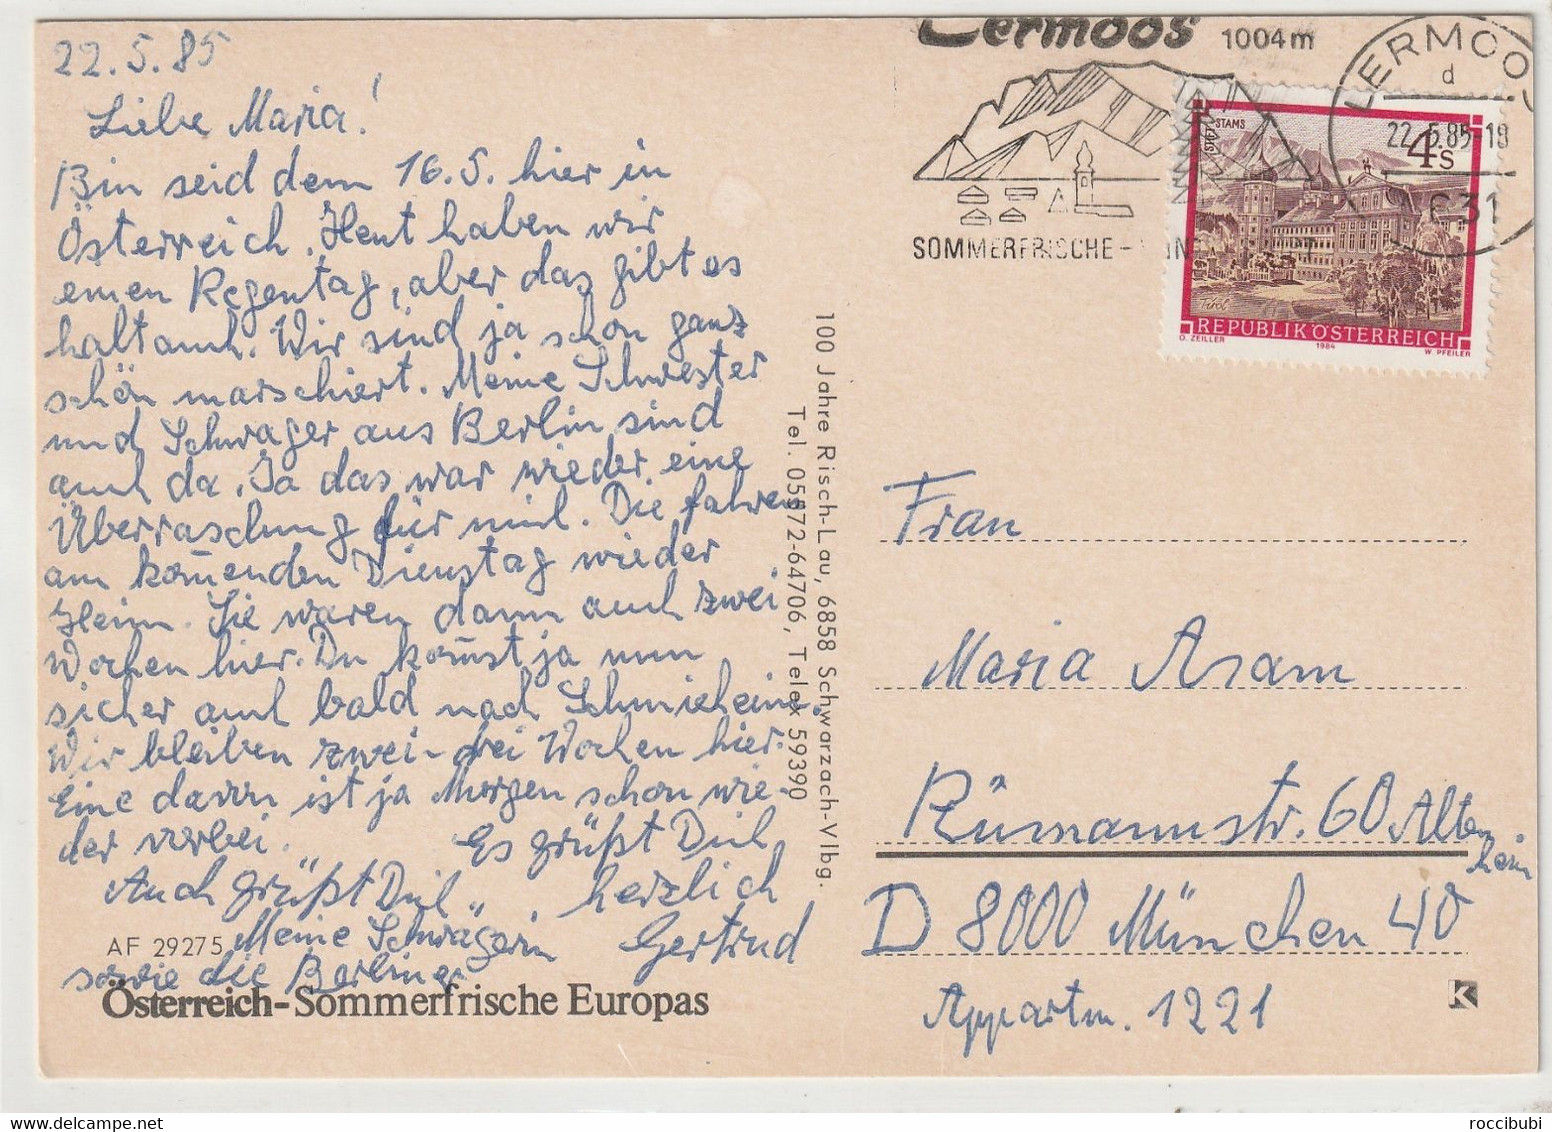 22.5.85
Liebe Maria!
Bin seid dem 16.5. hier in
Österreich. Heut haben wir
einen Regentag, aber das gibt es
halt auch. Wir sind ja schon ganz
schön marschiert. Meine Schwester
und Schwager aus Berlin sind
auch da. Ja das war wieder eine
Überraschung für mich. Die fahren
am kom̅enden Dienstag wieder
Heim. Sie waren dann auch zwei
Wochen hier. Du kom̅st ja nun
sicher auch bald nach Schmieheim.
Wir bleiben zwei-drei Wochen hier.
Eine davon ist ja Morgen schon wie-
der vorbei.
Es grüßt Dich
herzlich
Gertrud
Auch grüßt Dich
Meine Schwägerin
sowie die Berliner
AF 29275
Österreich-Sommerfrische Europas
100 Jahre Risch-Lau, 6858 Schwarzach-Vlbg.
Tel. 05572-64706, Telex 59390
Lermoos 1004m
SOMMERFRISCHE-
LERMOOS
d
22.5.85-18
6631
STIFT STAMS
4S
Tirol
REPUBLIK ÖSTERREICH
O. ZEILLER 1984 W. PFEILER
Frau
Maria Aram
Rümannstr. 60 Alten
heim
D 8000 München 40
Appartm. 1221
K
roccibubi